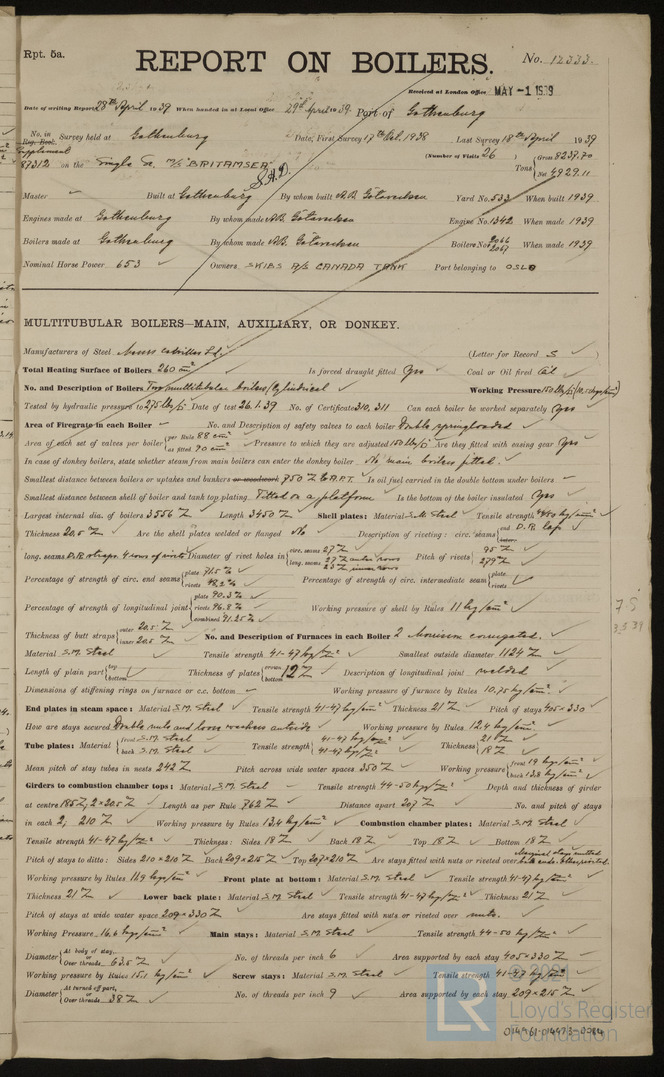 Rpt. 5a.
REPORT ON BOILERS.
No. 12333.
Received at London Office MAY -1 1939
Date of writing Report 28th April 1939 When handed in at Local Office 29th April 1939 Port of Gothenburg
No. in Reg. Book. Survey held at Gothenburg Date, First Survey 17th Oct. 1938 Last Survey 18th April 1939
Supplement (Number of Visits 26 )
87312 on the Single Sc. M/S "BRITAMSEA" Tons { Gross 8237.70 Net 4929.11
Master Built at Gothenburg By whom built A.B. Götaverken Yard No. 533 When built 1939
Engines made at Gothenburg By whom made A.B. Götaverken Engine No. 1342 When made 1939
Boilers made at Gothenburg By whom made A.B. Götaverken Boiler No. 2066 2067 When made 1939
Nominal Horse Power 653 Owners SKIBS A/S CANADA TANK Port belonging to OSLO
MULTITUBULAR BOILERS—MAIN, AUXILIARY, OR DONKEY.
Manufacturers of Steel (Letter for Record S )
Total Heating Surface of Boilers 260 m² Is forced draught fitted Yes Coal or Oil fired Oil
No. and Description of Boilers Two multitubular boilers (Cylindrical Working Pressure 150 lbs/□"
Tested by hydraulic pressure to 275 lbs/□" Date of test 26.1.39 No. of Certificate 310, 311 Can each boiler be worked separately Yes
Area of Firegrate in each Boiler – No. and Description of safety valves to each boiler Double springloaded
Area of each set of valves per boiler { per Rule 88 cm² as fitted 90 cm² Pressure to which they are adjusted 150 lbs/□" Are they fitted with easing gear Yes
In case of donkey boilers, state whether steam from main boilers can enter the donkey boiler No main boilers fitted.
Smallest distance between boilers or uptakes and bunkers or woodwork 750 Is oil fuel carried in the double bottom under boilers –
Smallest distance between shell of boiler and tank top plating Fitted on a platform Is the bottom of the boiler insulated Yes
Largest internal dia. of boilers 3556 Length 3450 Shell plates: Material S.M. Steel Tensile strength
Thickness 20.5 Are the shell plates welded or flanged No Description of riveting: circ. seams { end D.R. lap inter.
long. seams Diameter of rivet holes in { circ. seams 27 long. seams 27 outer rows 25 inner rows Pitch of rivets { 95 279
Percentage of strength of circ. end seams { plate 71.5% rivets 48.2% Percentage of strength of circ. intermediate seam { plate rivets
Percentage of strength of longitudinal joint { plate 90.3% rivets 96.8% combined 91.25% Working pressure of shell by Rules 11 kg/cm²
Thickness of butt straps { outer 20.5 inner 20.5 No. and Description of Furnaces in each Boiler 2 Morison corrugated.
Material S.M. Steel Tensile strength 41-47 Smallest outside diameter 1124
Length of plain part { top bottom Thickness of plates { crown bottom 12 Description of longitudinal joint welded
Dimensions of stiffening rings on furnace or c.c. bottom – Working pressure of furnace by Rules 10.75 kg/cm²
End plates in steam space: Material S.M. Steel Tensile strength 41-47 kg/ Thickness 21 Pitch of stays 405 × 330
How are stays secured Double nuts and loose washers outside Working pressure by Rules 12.4 kg/cm²
Tube plates: Material { front S.M. Steel back S.M. Steel Tensile strength { 41-47 kg/ 41-47 kg/ Thickness { 21 18
Mean pitch of stay tubes in nests 242 Pitch across wide water spaces 350 Working pressure { front 19 kg/cm² back 13.8 kg/cm²
Girders to combustion chamber tops: Material S.M. Steel Tensile strength 44-50 kg/ Depth and thickness of girder
at centre 185, 2 × 20.5 Length as per Rule 762 Distance apart 207 No. and pitch of stays
in each 2, 210 Working pressure by Rules 13.4 kg/cm² Combustion chamber plates: Material S.M. Steel
Tensile strength 41-47 kg/ Thickness: Sides 18 Back 18 Top 18 Bottom 18
Pitch of stays to ditto: Sides 210 × 210 Back 209 × 215 Top 207 × 210 Are stays fitted with nuts or riveted over Marginal stays nutted both ends. Others riveted.
Working pressure by Rules 11.9 kg/cm² Front plate at bottom: Material S.M. Steel Tensile strength 41-47 kg/
Thickness 21 Lower back plate: Material S.M. Steel Tensile strength 41-47 kg/ Thickness 21
Pitch of stays at wide water space 209 × 330 Are stays fitted with nuts or riveted over nuts.
Working Pressure 16.6 kg/cm² Main stays: Material S.M. Steel Tensile strength 44-50 kg/
Diameter { At body of stay, or Over threads 63.5 No. of threads per inch 6 Area supported by each stay 405 × 330
Working pressure by Rules 15.1 kg/cm² Screw stays: Material S.M. Steel Tensile strength 41-47 kg/
Diameter { At turned off part, or Over threads 38 No. of threads per inch 9 Area supported by each stay 209 × 215
LR
Lloyd's Register
Foundation
014961-014973-0084